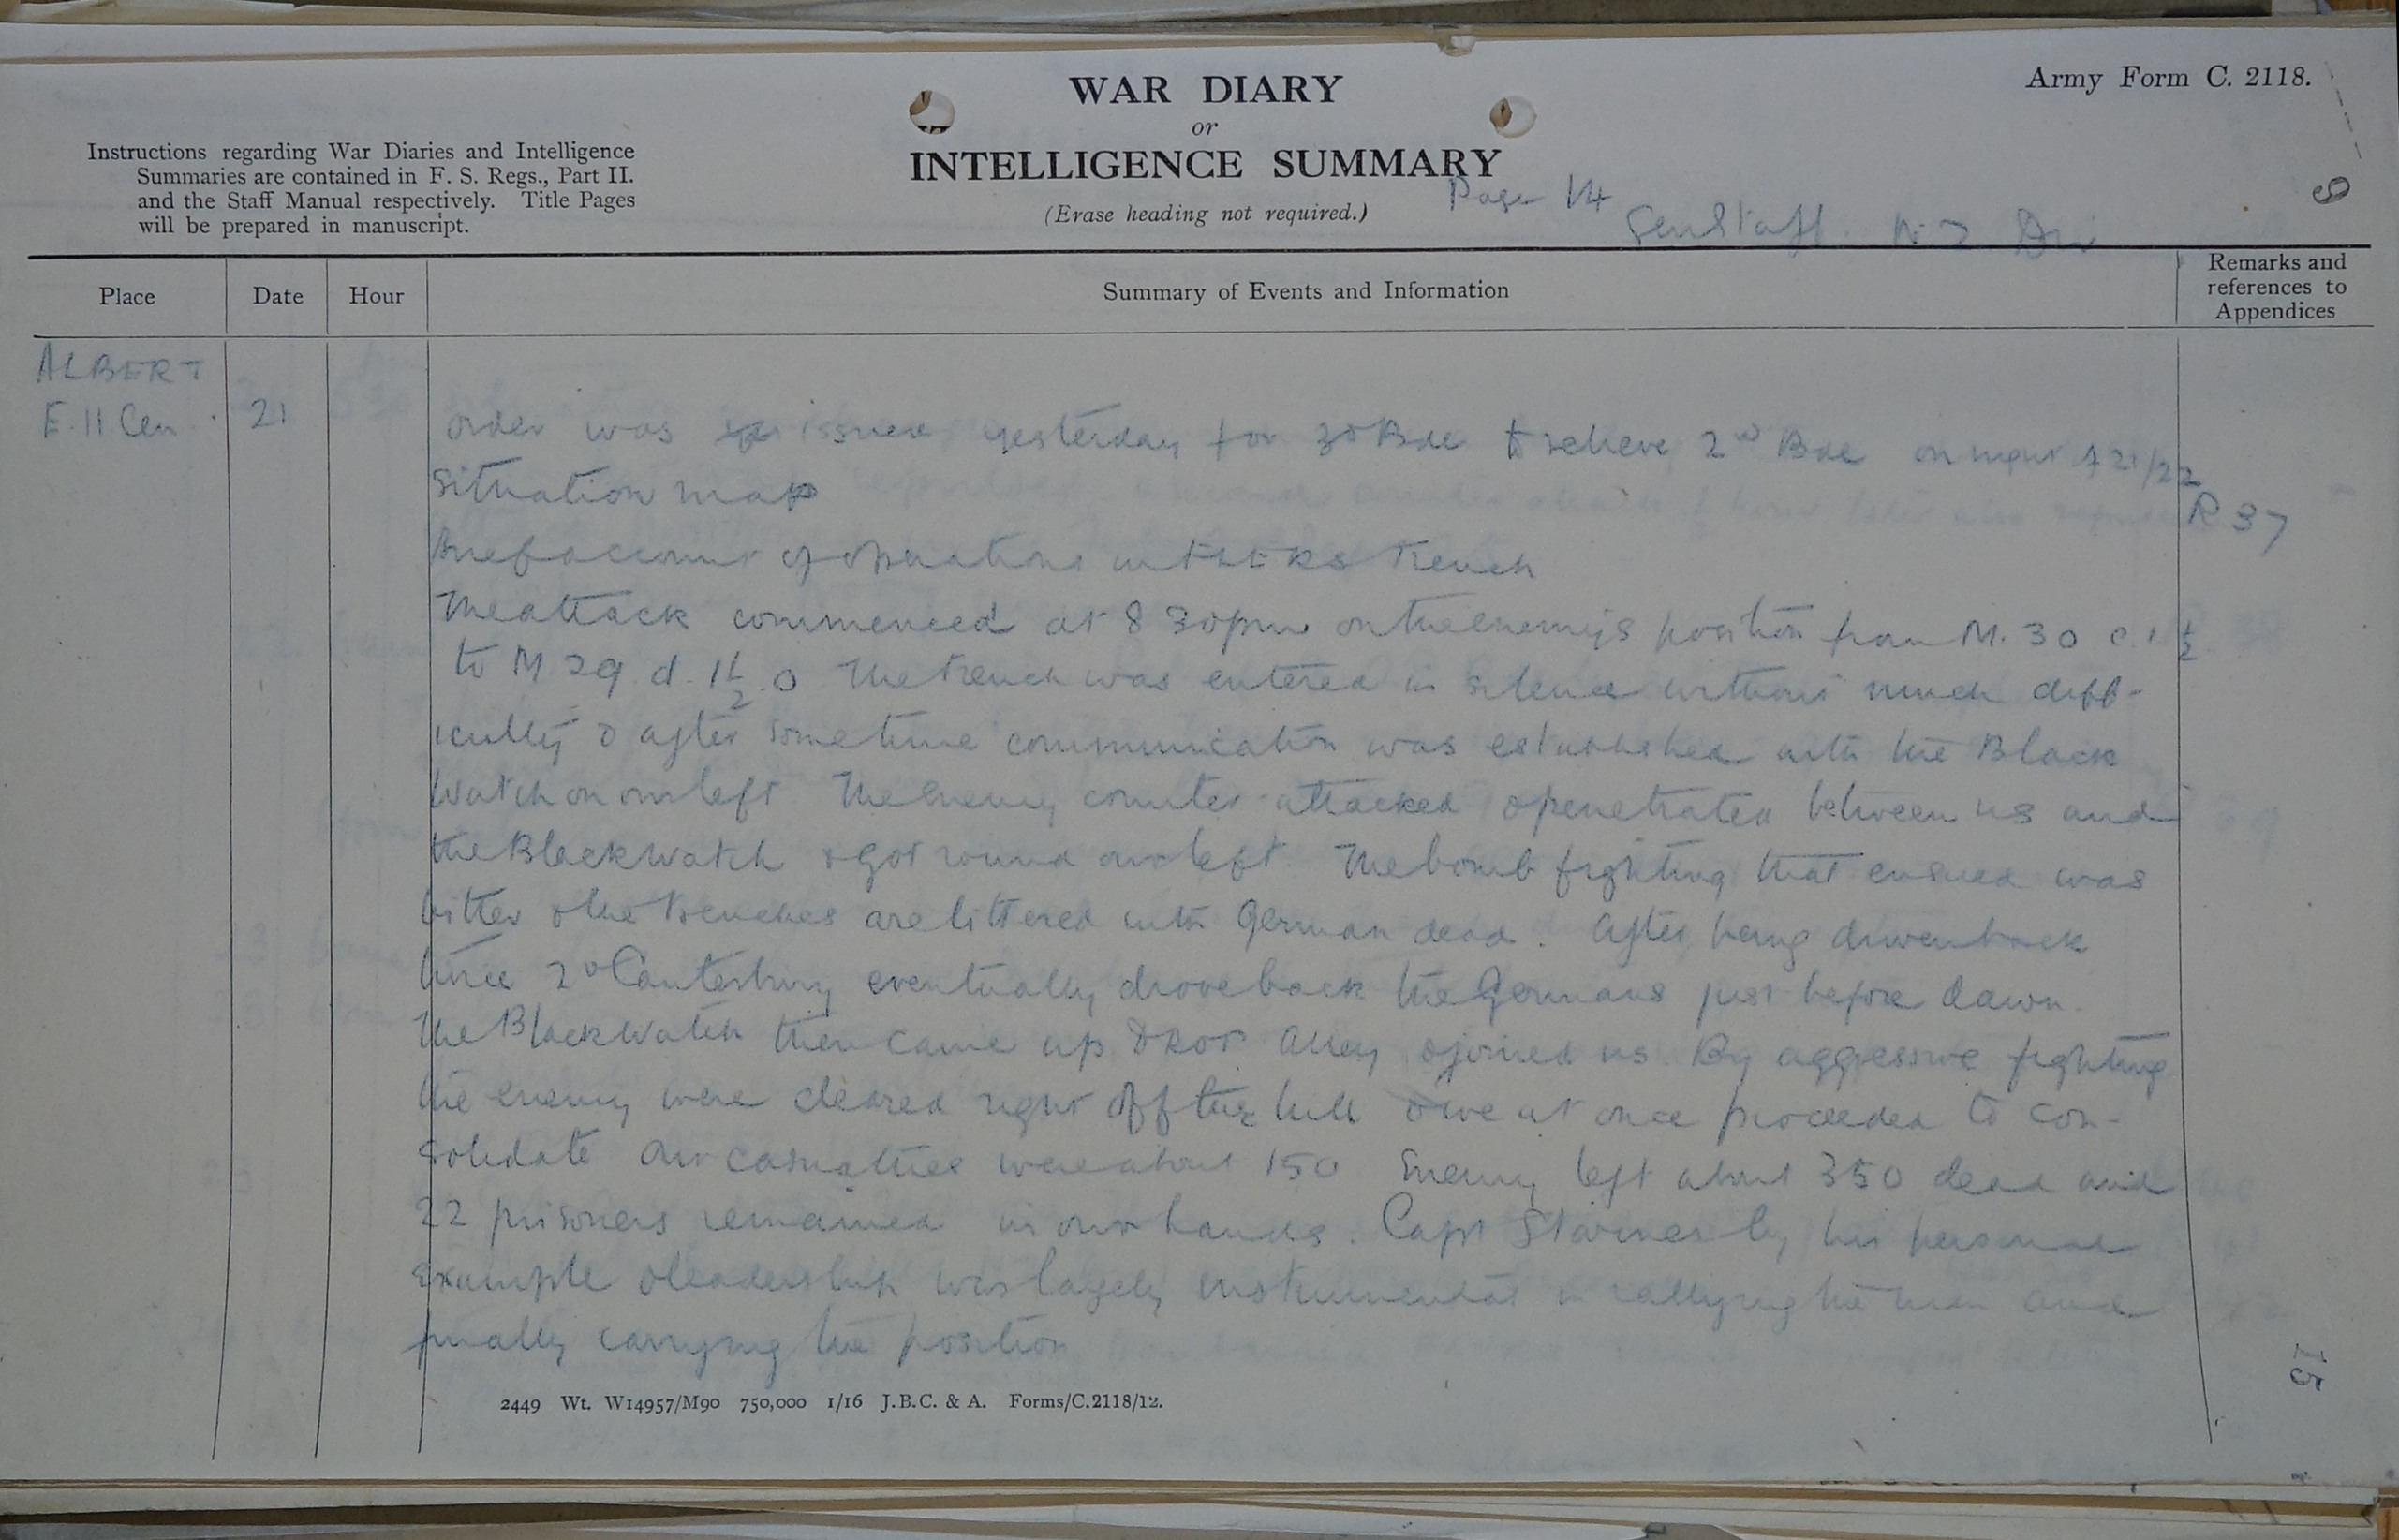 WAR DIARY
or
INTELLIGENCE SUMMARY
(Erase heading not required.)
Army Form C. 2118.
Instructions regarding War Diaries and Intelligence
Summaries are contained in F. S. Regs., Part II.
and the Staff Manual respectively. Title Pages
will be prepared in manuscript.
Page 14
Gen Staff N Z Div
9
Place
Date
Hour
Summary of Events and Information
Remarks and
references to
Appendices
ALBERT
E. 11 Cen
21
order was issued yesterday for 3d Bde to relieve 2nd Bde on night of 21/22
Situation map
R 37
Brief account of operations in FLERS Trench
The attack commenced at 8 30pm on the enemy's position from M. 30 c. 1 ½
to M 29. d. 1½. 0 The trench was entered in silence without much diff-
iculty & after sometime communication was established with the Black
Watch on our left The enemy counter-attacked & penetrated between us and
the Black Watch & got round our left The bomb fighting that ensued was
bitter & the trenches are littered with German dead. After being driven back
twice 2d Canterbury eventually drove back the Germans just before dawn.
The Black Watch then came up DROP Alley & joined us. By aggressive fighting
the enemy were cleared right off the hill & we at once proceeded to con-
solidate Our casualties were about 150 Enemy left about 350 dead and
22 prisoners remained in our hands. Capt Starnes by his personal
example & leadership was largely instrumental in rallying the men and
finally carrying the position
2449 Wt. W14957/M90 750,000 1/16 J.B.C. & A. Forms/C.2118/12.
15